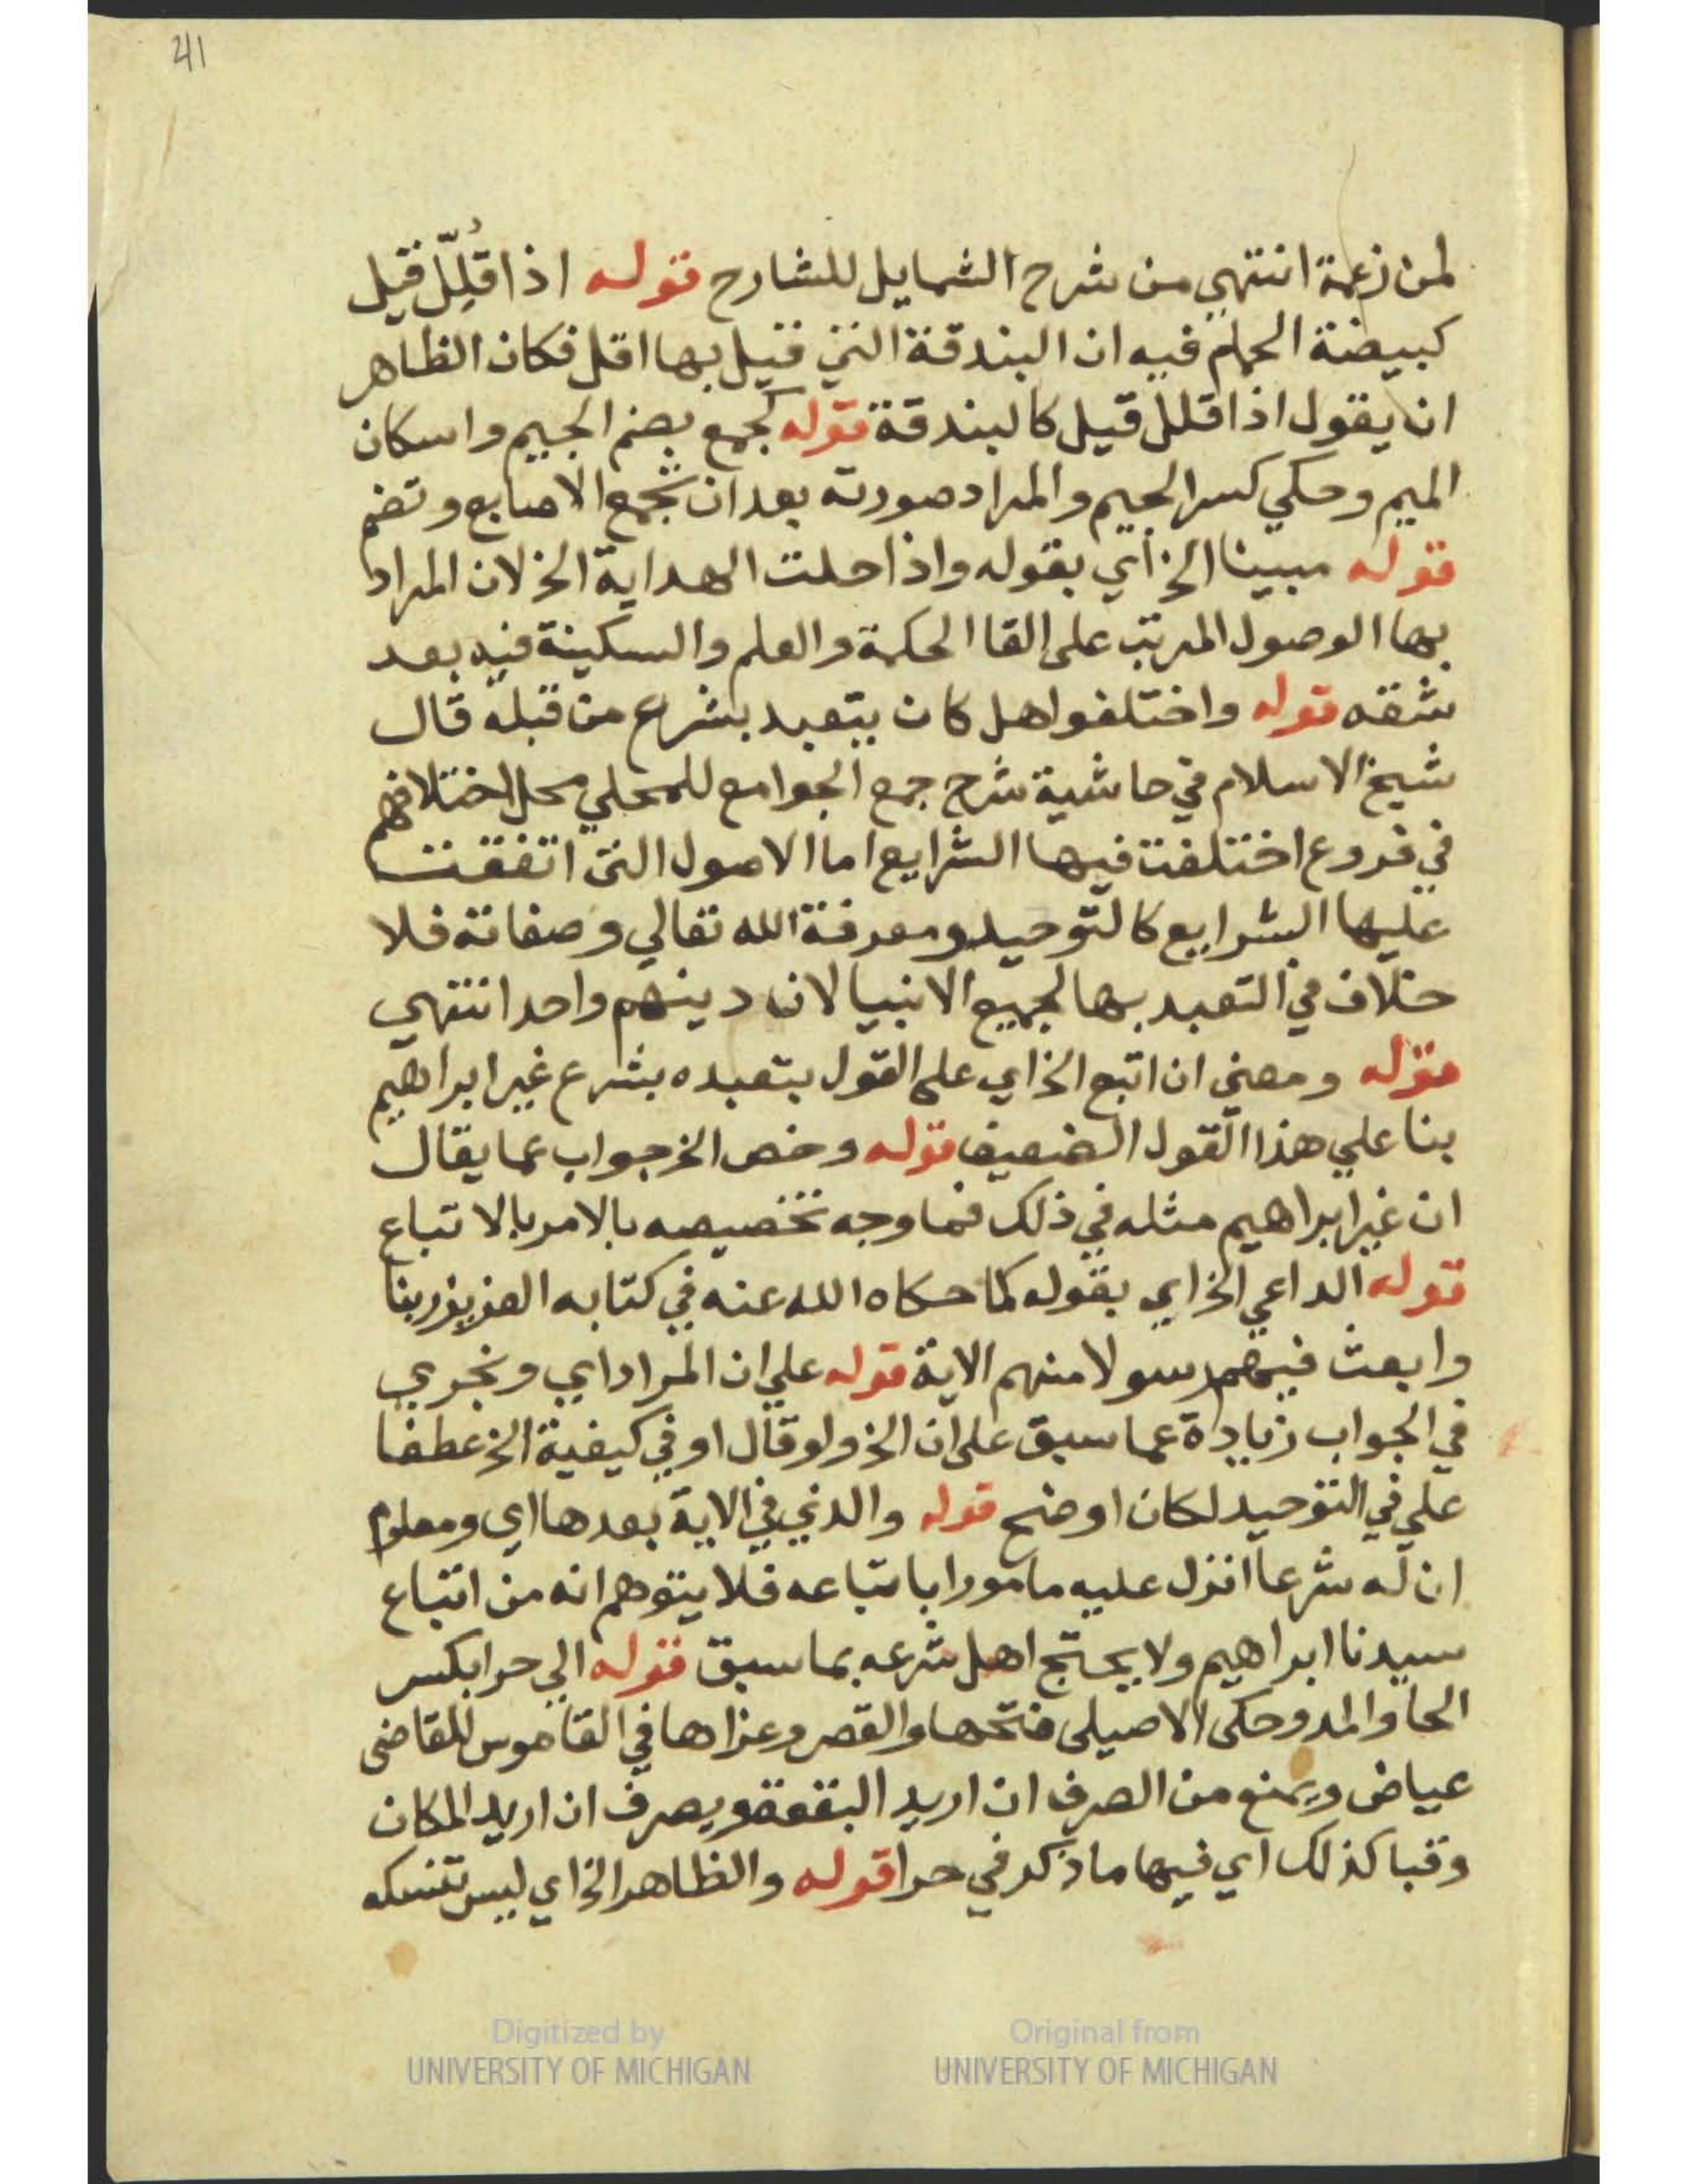 41
لمن زعمة انتهي من شرح الشمايل للشارح قوله اذا قُلِّل قيل
كبيضة الحمام فيه ان البندقة التي قيل بها اقل فكان الظاهر
ان يقول اذا قلل قيل كالبندقة قوله كجمع بضم الجيم واسكان
الميم وحكي كسر الجيم والمراد صورته بعد ان تجمع الاصابع وتضم
قوله مبينا الخ اي بقوله واذا حلت الهداية الخ لان المراد
بها الوصول المرتب على القا الحكمة والعلم والسكينة فيه بعد
شقه قوله واختلفوا هل كان يتعبد بشرع من قبله قال
شيخ الاسلام في حاشية شرح جمع الجوامع للمحلي محل اختلافهم
في فروع اختلفت فيها الشرايع اما الاصول التي اتفقت
عليها الشرايع كالتوحيد ومعرفة الله تعالي وصفاته فلا
خلاف في التعبد بها لجميع الانبيا لان دينهم واحد انتهي
قوله ومعني ان اتبع الخ اي على القول بتعبده بشرع غير ابراهيم
بنا علي هذا القول الضعيف قوله وخص الخ جواب عما يقال
ان غير ابراهيم مثله في ذلك فما وجه تخصيصه بالامر بالاتباع
قوله الداعي الخ اي بقوله كما حكاه الله عنه في كتابه العزيز ربنا
وابعث فيهم رسولا منهم الاية قوله علي ان المراد اي ونجري
في الجواب زيادة عما سبق على ان الخ ولو قال او في كيفية الخ عطفا
علي في التوحيد لكان اوضح قوله والذي في الاية بعدها اي ومعلوم
ان له شرعا انزل عليه مامورا باتباعه فلا يتوهم انه من اتباع
سيدنا ابراهيم ولا يحتج اهل شرعه بما سبق قوله الي حرا بكسر
الحا والمد وحكى الاصيلى فتحها والقصر وعزاها في القاموس للقاضى
عياض ويمنع من الصرف ان اريد البقعة ويصرف ان اريد المكان
وقبا كذلك اي فيها ما ذكر في حرا قوله والظاهر الخ اي ليس تنسكه
Digitized by
UNIVERSITY OF MICHIGAN
Original from
UNIVERSITY OF MICHIGAN